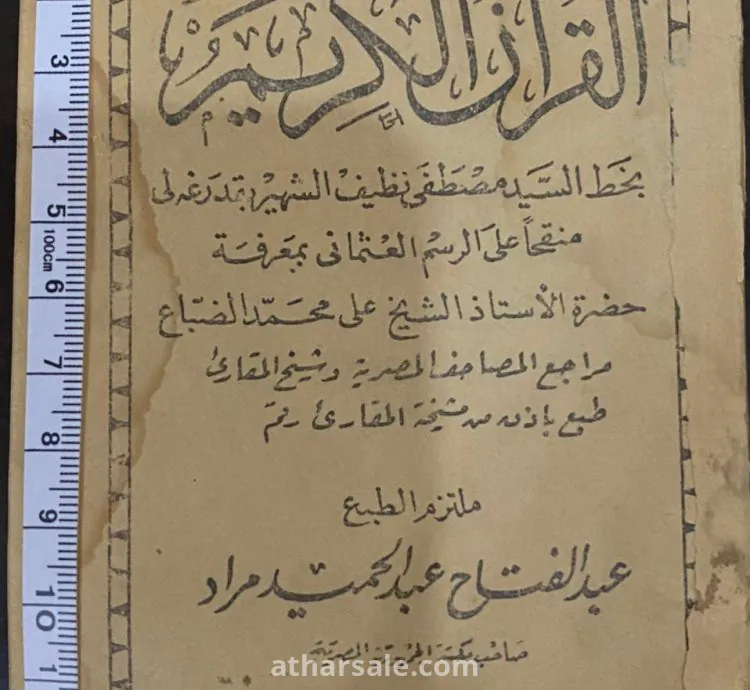 القرآن الكريم
بخط السيد مصطفى نظيف الشهير بقدرغه لى
منقحاً على الرسم العثمانى بمعرفة
حضرة الأستاذ الشيخ على محمد الضباع
مراجع المصاحف المصرية وشيخ المقارئ
طبع بإذن من مشيخة المقارئ رقم
ملتزم الطبع
عبد الفتاح عبد الحميد مراد
صاحب مكتبة المصرية
atharsale.com
3
4
5
100cm
6
7
8
9
10
1